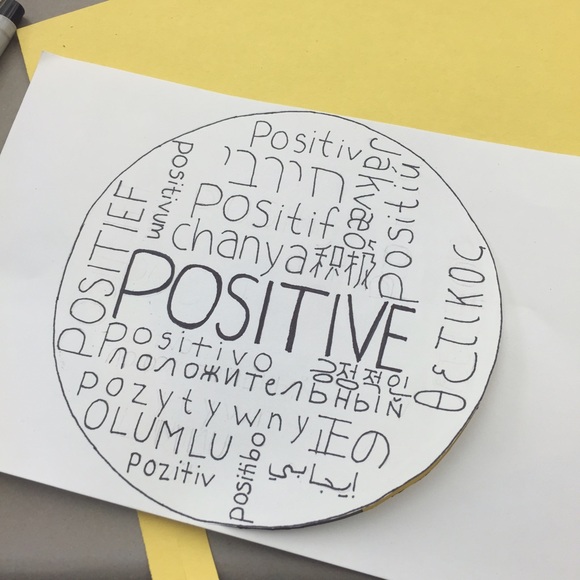 Positiv
חיובי
Jákvæð
positivum
positin
Positif
chanya
积极
POSITIEF
POSITIVE
θετικος
Positivo
положительный
긍정적인
pozytywny
正の
OLUMLU
pozitiv
positibo
إيجابي